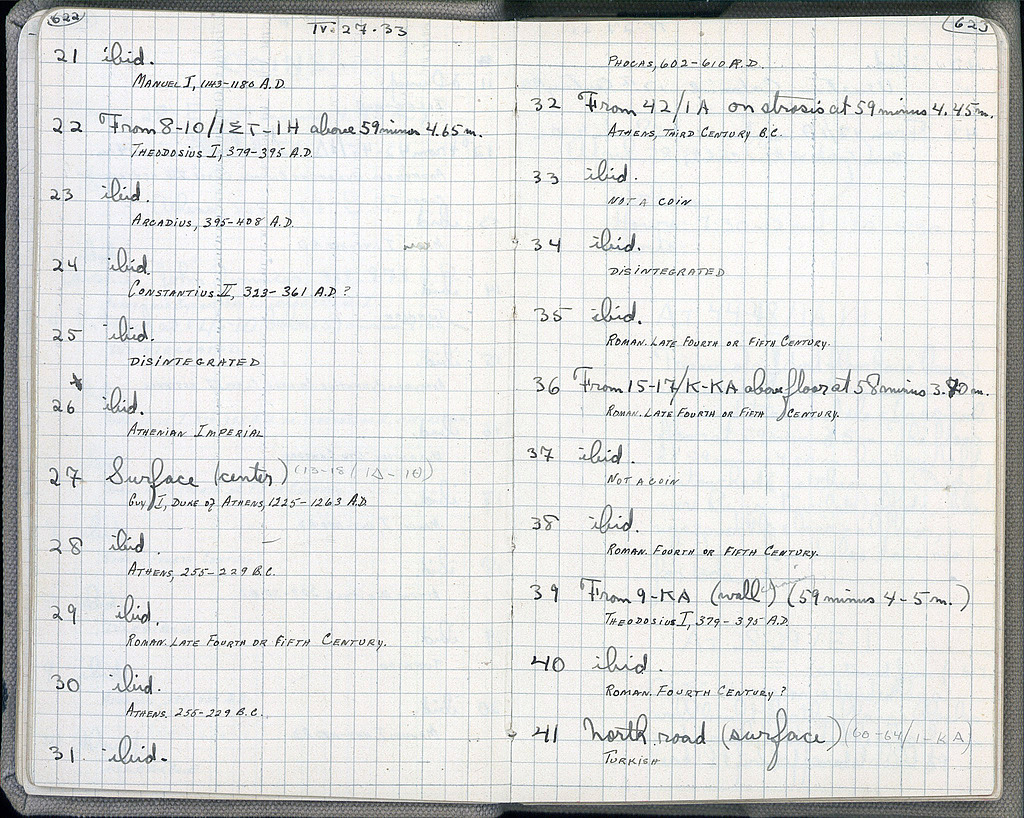 622
IV-27-33
21 ibid.
MANUEL I, 1143-1180 A.D.
22 From 8-10/ΙΣΤ-ΙΗ above 59 minus 4.65 m.
THEODOSIUS I, 379-395 A.D.
23 ibid.
ARCADIUS, 395-408 A.D.
24 ibid.
CONSTANTIUS II, 323-361 A.D.?
25 ibid.
DISINTEGRATED
26 ibid.
ATHENIAN IMPERIAL
27 Surface (center) (13-18/ΙΔ-ΙΘ)
GUY I, DUKE of ATHENS, 1225-1263 A.D.
28 ibid.
ATHENS, 255-229 B.C.
29 ibid.
ROMAN. LATE FOURTH OR FIFTH CENTURY.
30 ibid.
ATHENS. 255-229 B.C.
31 ibid.
623
PHOCAS, 602-610 A.D.
32 From 42/ΙΑ on strosis at 59 minus 4.45 m.
ATHENS, THIRD CENTURY B.C.
33 ibid.
NOT A COIN
34 ibid.
DISINTEGRATED
35 ibid.
ROMAN. LATE FOURTH OR FIFTH CENTURY.
36 From 15-17/Κ-ΚΑ above floor at 58 minus 3.70 m.
ROMAN. LATE FOURTH OR FIFTH CENTURY.
37 ibid.
NOT A COIN
38 ibid.
ROMAN. FOURTH OR FIFTH CENTURY.
39 From 9-ΚΑ (wall) (59 minus 4-5 m.)
THEODOSIUS I, 379-395 A.D.
40 ibid.
ROMAN. FOURTH CENTURY?
41 North road (surface) (60-64/Ι-ΚΑ)
TURKISH